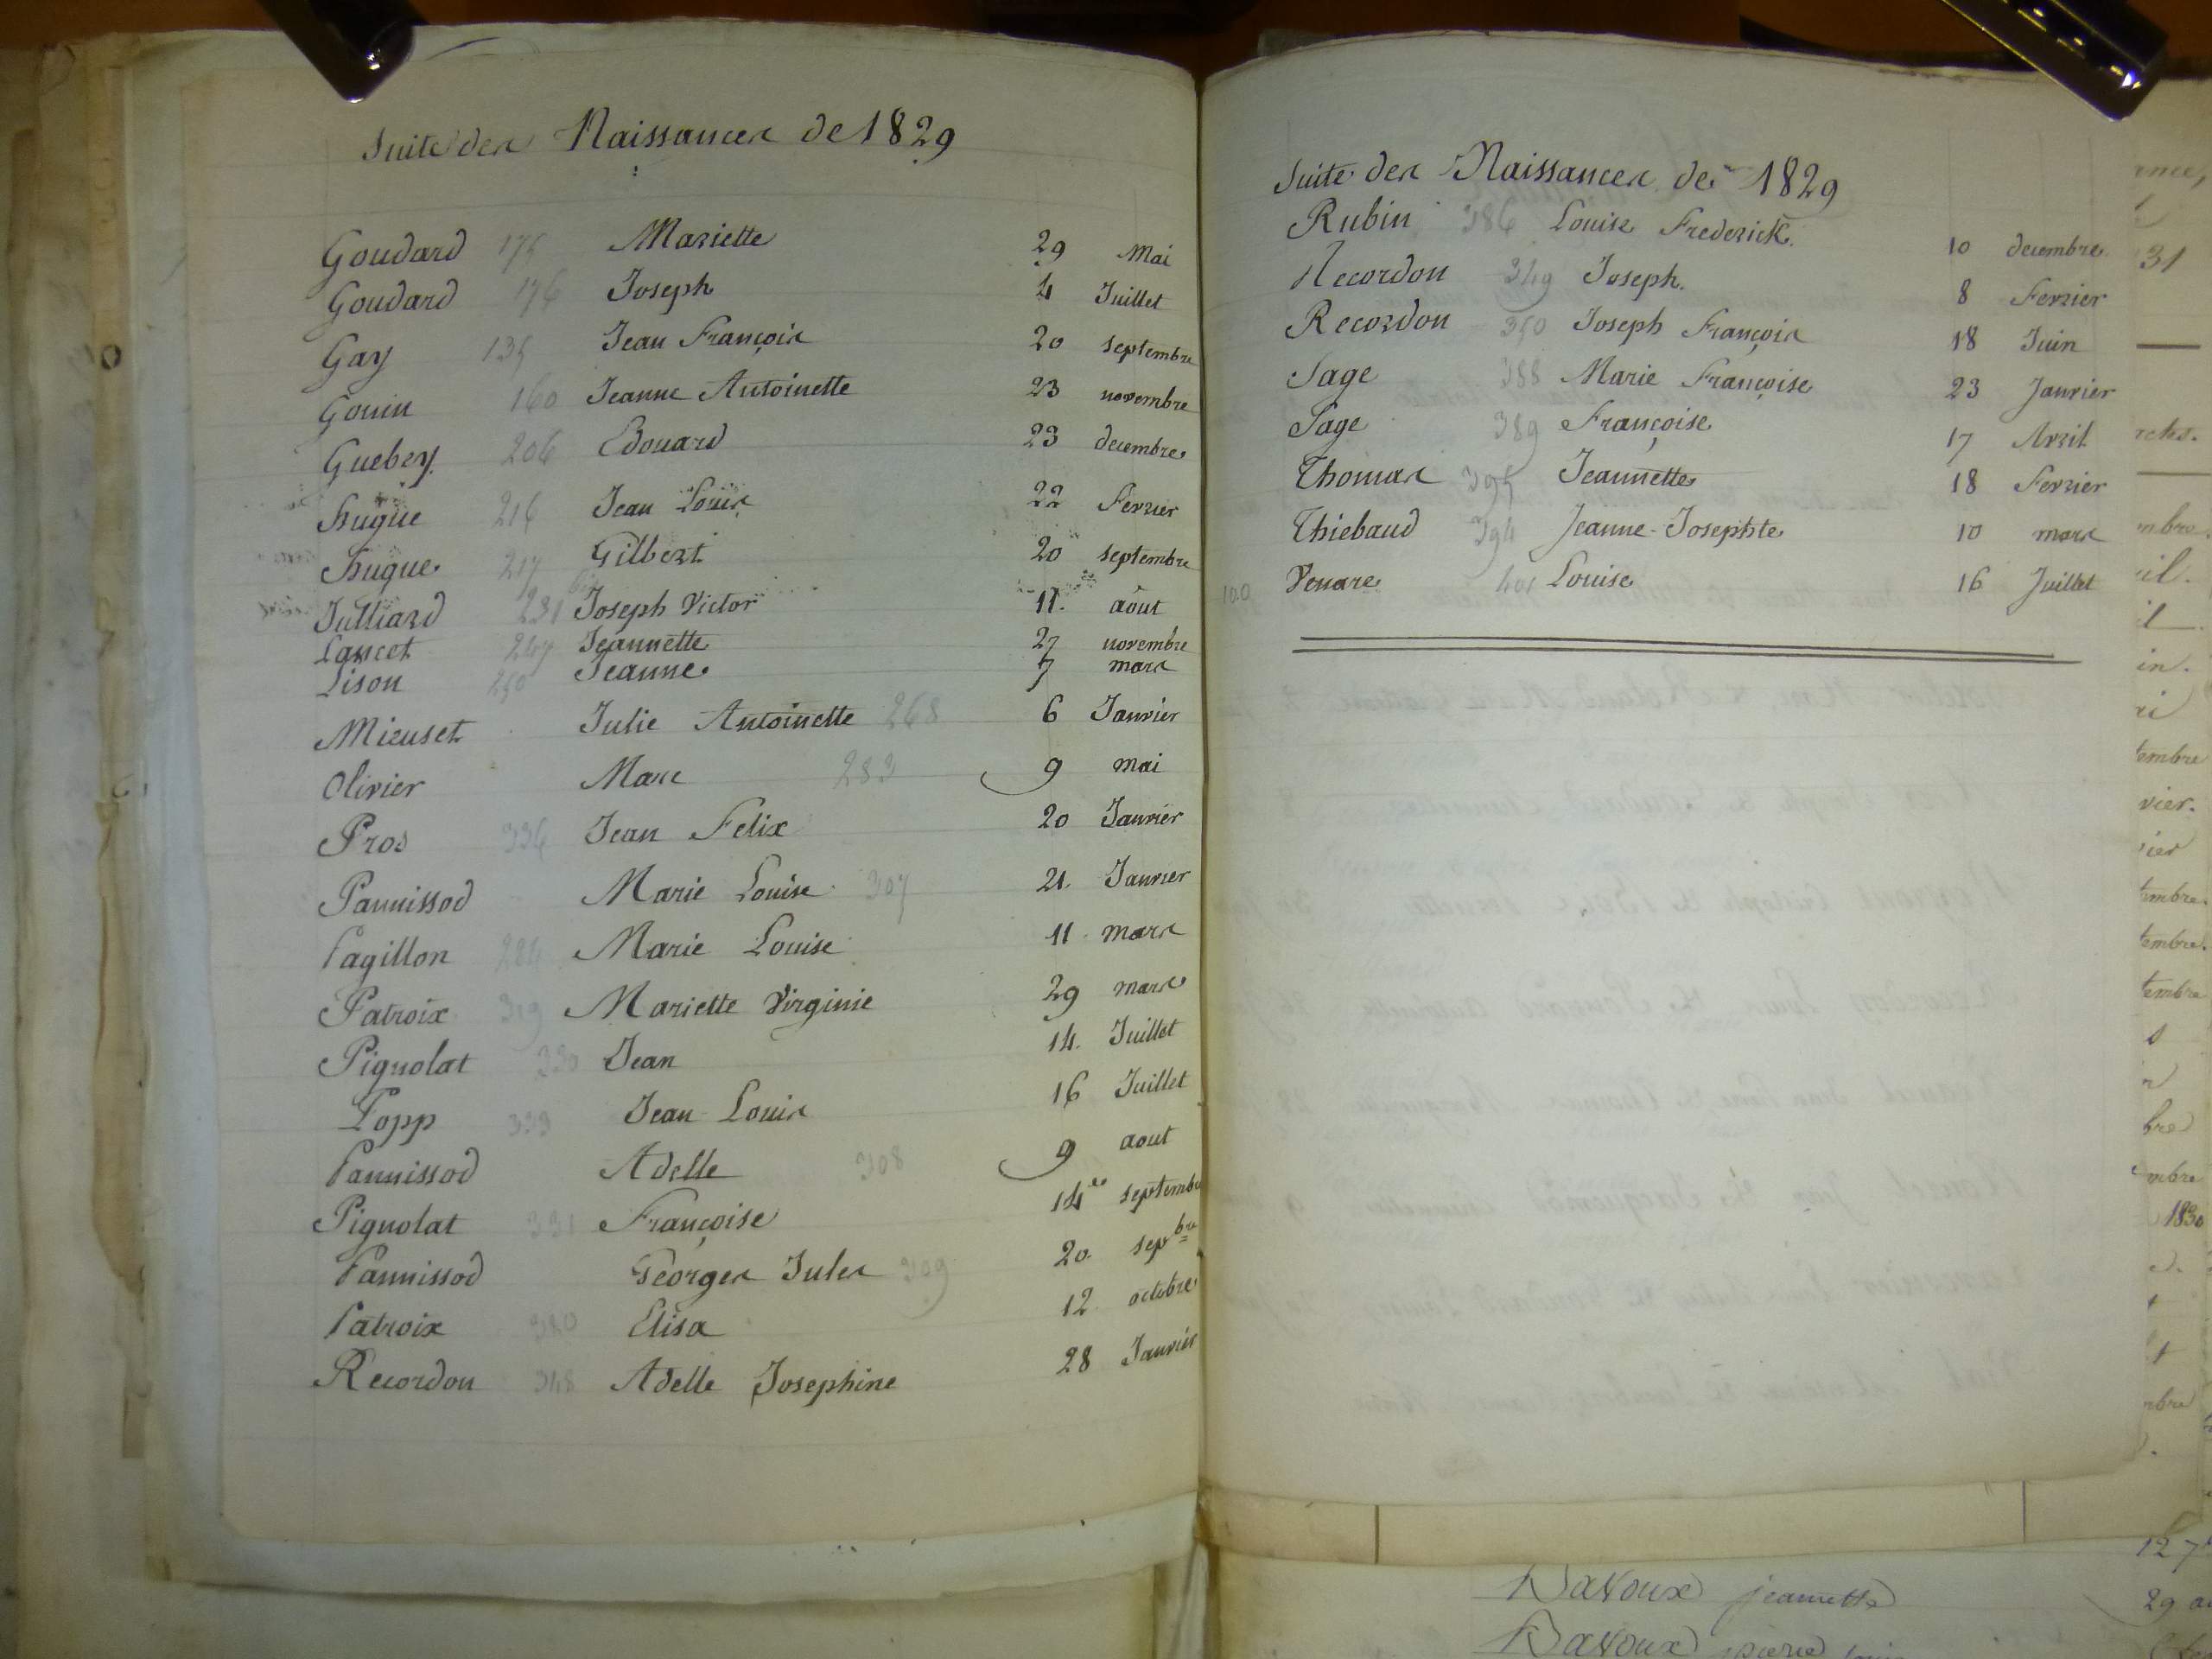 Suite des Naissances de 1829
Goudard 175 Mariette 29 Mai
Goudard 176 Joseph 4 Juillet
Gay 135 Jean François 20 septembre
Gouin 160 Jeanne Antoinette 23 novembre
Guebey 206 Edouard 23 decembre
Hugue 216 Jean Louis 22 Fevrier
Hugue 217 Gilbert 20 septembre
Julliard 231 Joseph Victor 11 aôut
Lancet 247 Jeannette 27 novembre
Lison 250 Jeanne 7 mars
Micuset Julie Antoinette 268 6 Janvier
Olivier Marc 283 9 mai
Pros 336 Jean Felix 20 Janvier
Pannissod Marie Louise 307 21 Janvier
Pagillon Marie Louise 11 mars
Patroix 319 Mariette Virginie 29 mars
Pignolat 330 Jean 14 Juillet
Popp 333 Jean Louis 16 Juillet
Pannissod Adelle 308 9 aout
Pignolat 331 Françoise 14 septembre
Pannissod Georges Jules 309 20 sepbre
Patroix 320 Elisa 12 octobre
Recordon 348 Adelle Josephine 28 Janvier
Suite des Naissances de 1829
Rubin 386 Louis Frederick 10 decembre
Recordon 349 Joseph. 8 Fevrier
Recordon 350 Joseph François 18 Juin
Sage 388 Marie Françoise 23 Janvier
Sage 389 Françoise 17 Avril
Thomas 395 Jeannette 18 Fevrier
Thiebaud 394 Jeanne-Josephte 10 mars
100 Venare 401 Louise 16 Juillet
31
1830
Davoux jeannette
29
Davoux pierre